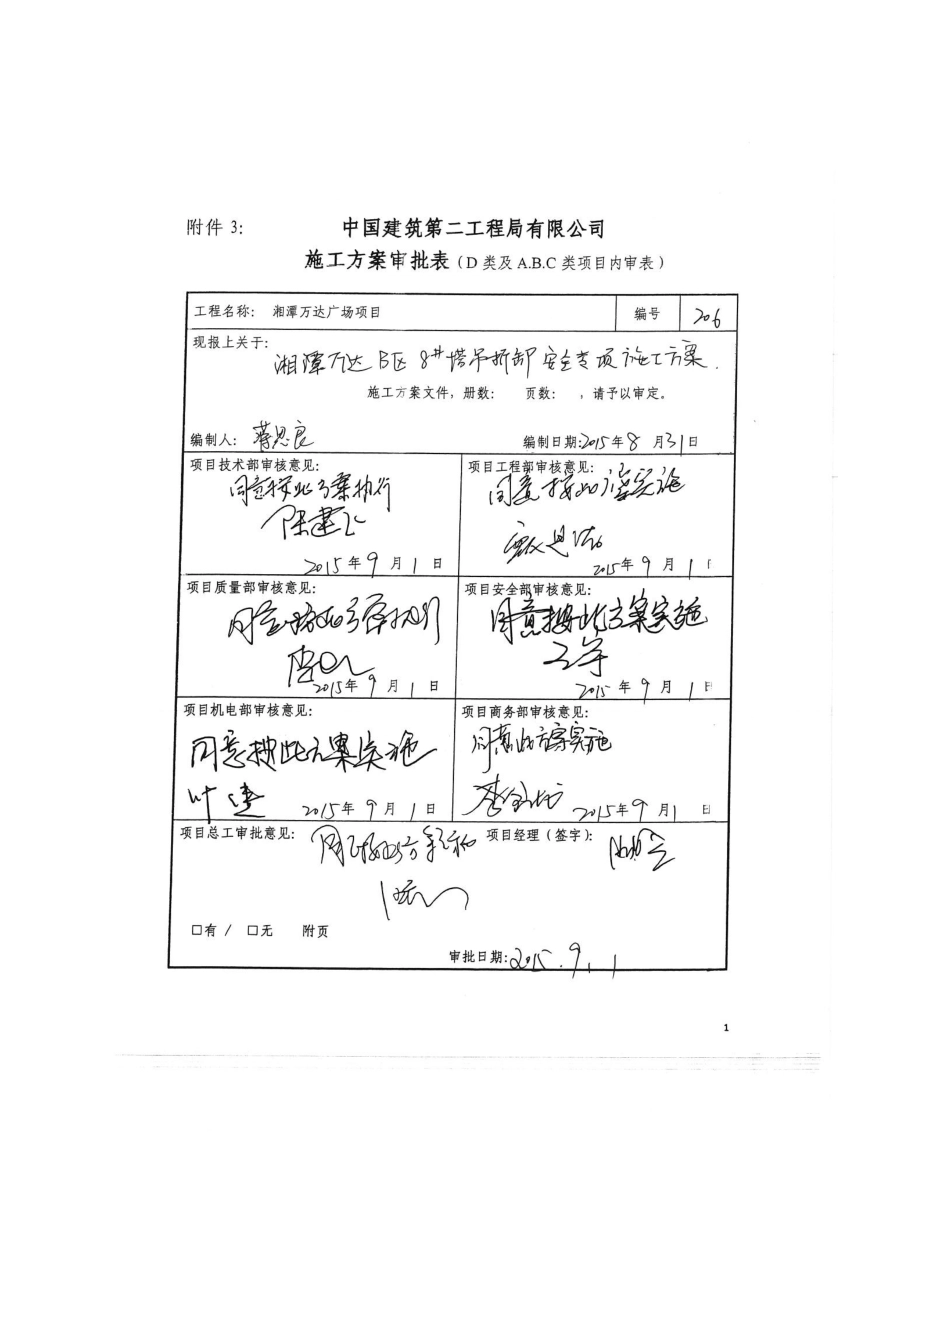 附件 3:
中国建筑第二工程局有限公司
施工方案审批表(D 类及 A.B.C 类项目内审表)
工程名称: 湘潭万达广场项目 编号 206
现报上关于:
湘潭万达B区8#塔吊拆卸安全专项施工方案.
施工方案文件,册数: 页数: ,请予以审定。
编制人: 蒋思良 编制日期:2015年8月31日
项目技术部审核意见: 项目工程部审核意见:
同意按此方案执行 同意按此方案实施
2015年9月1日 2015年9月1日
项目质量部审核意见: 项目安全部审核意见:
同意按此方案执行 同意按此方案实施
2015年9月1日 2015年9月1日
项目机电部审核意见: 项目商务部审核意见:
同意按此方案实施 同意此方案实施
2015年9月1日 2015年9月1日
项目总工审批意见: 项目经理(签字):
□有 / □无 附页
审批日期:2015.9.1
1